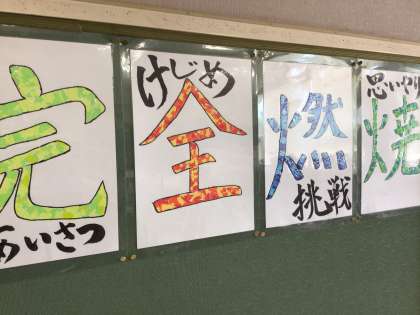 完
あいさつ
けじめ
全
燃
挑戦
思いやり
焼